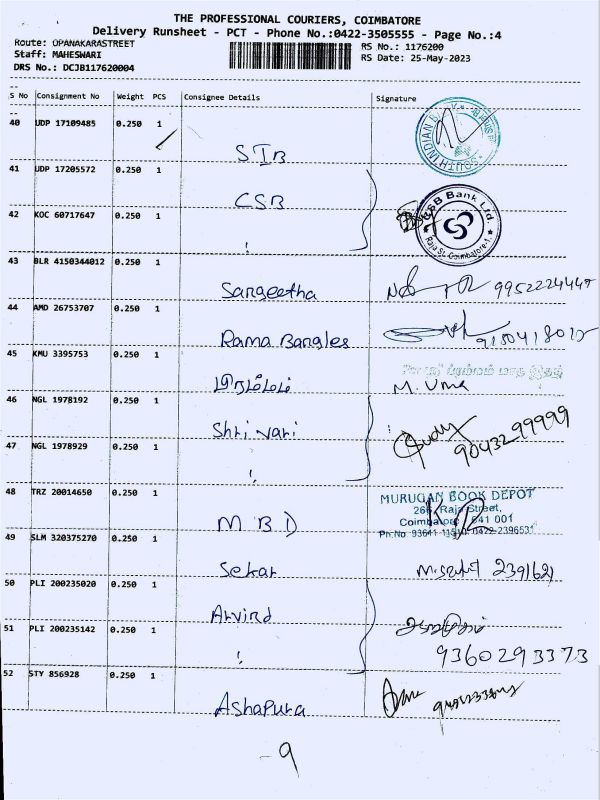 THE PROFESSIONAL COURIERS, COIMBATORE
Delivery Runsheet - PCT - Phone No.:0422-3505555 - Page No.:4
Route: OPANAKARASTREET
Staff: MAHESWARI
DRS No.: DCJB117620004
RS No.: 1176200
RS Date: 25-May-2023
S No Consignment No Weight PCS Consignee Details Signature
40 UDP 17109485 0.250 1
SIB
SOUTH INDIAN
41 UDP 17205572 0.250 1
CSB
CSB Bank Ltd.
Raja St. Coimbatore-1
42 KOC 60717647 0.250 1
43 BLR 4150344012 0.250 1
Sangeetha 9952224447
44 AMD 26753707 0.250 1
Rama Bangles
45 KMU 3395753 0.250 1
M. Uma
46 NGL 1978192 0.250 1
Shri vari
9043299999
47 NGL 1978929 0.250 1
48 TRZ 20014650 0.250 1
MBD
MURUGAN BOOK DEPOT
266, Raja Street,
Coimbatore 641 001
0422-2396531
49 SLM 320375270 0.250 1
Sekar
50 PLI 200235020 0.250 1
Arvind
51 PLI 200235142 0.250 1
9360293373
52 STY 856928 0.250 1
Ashapura
- 9